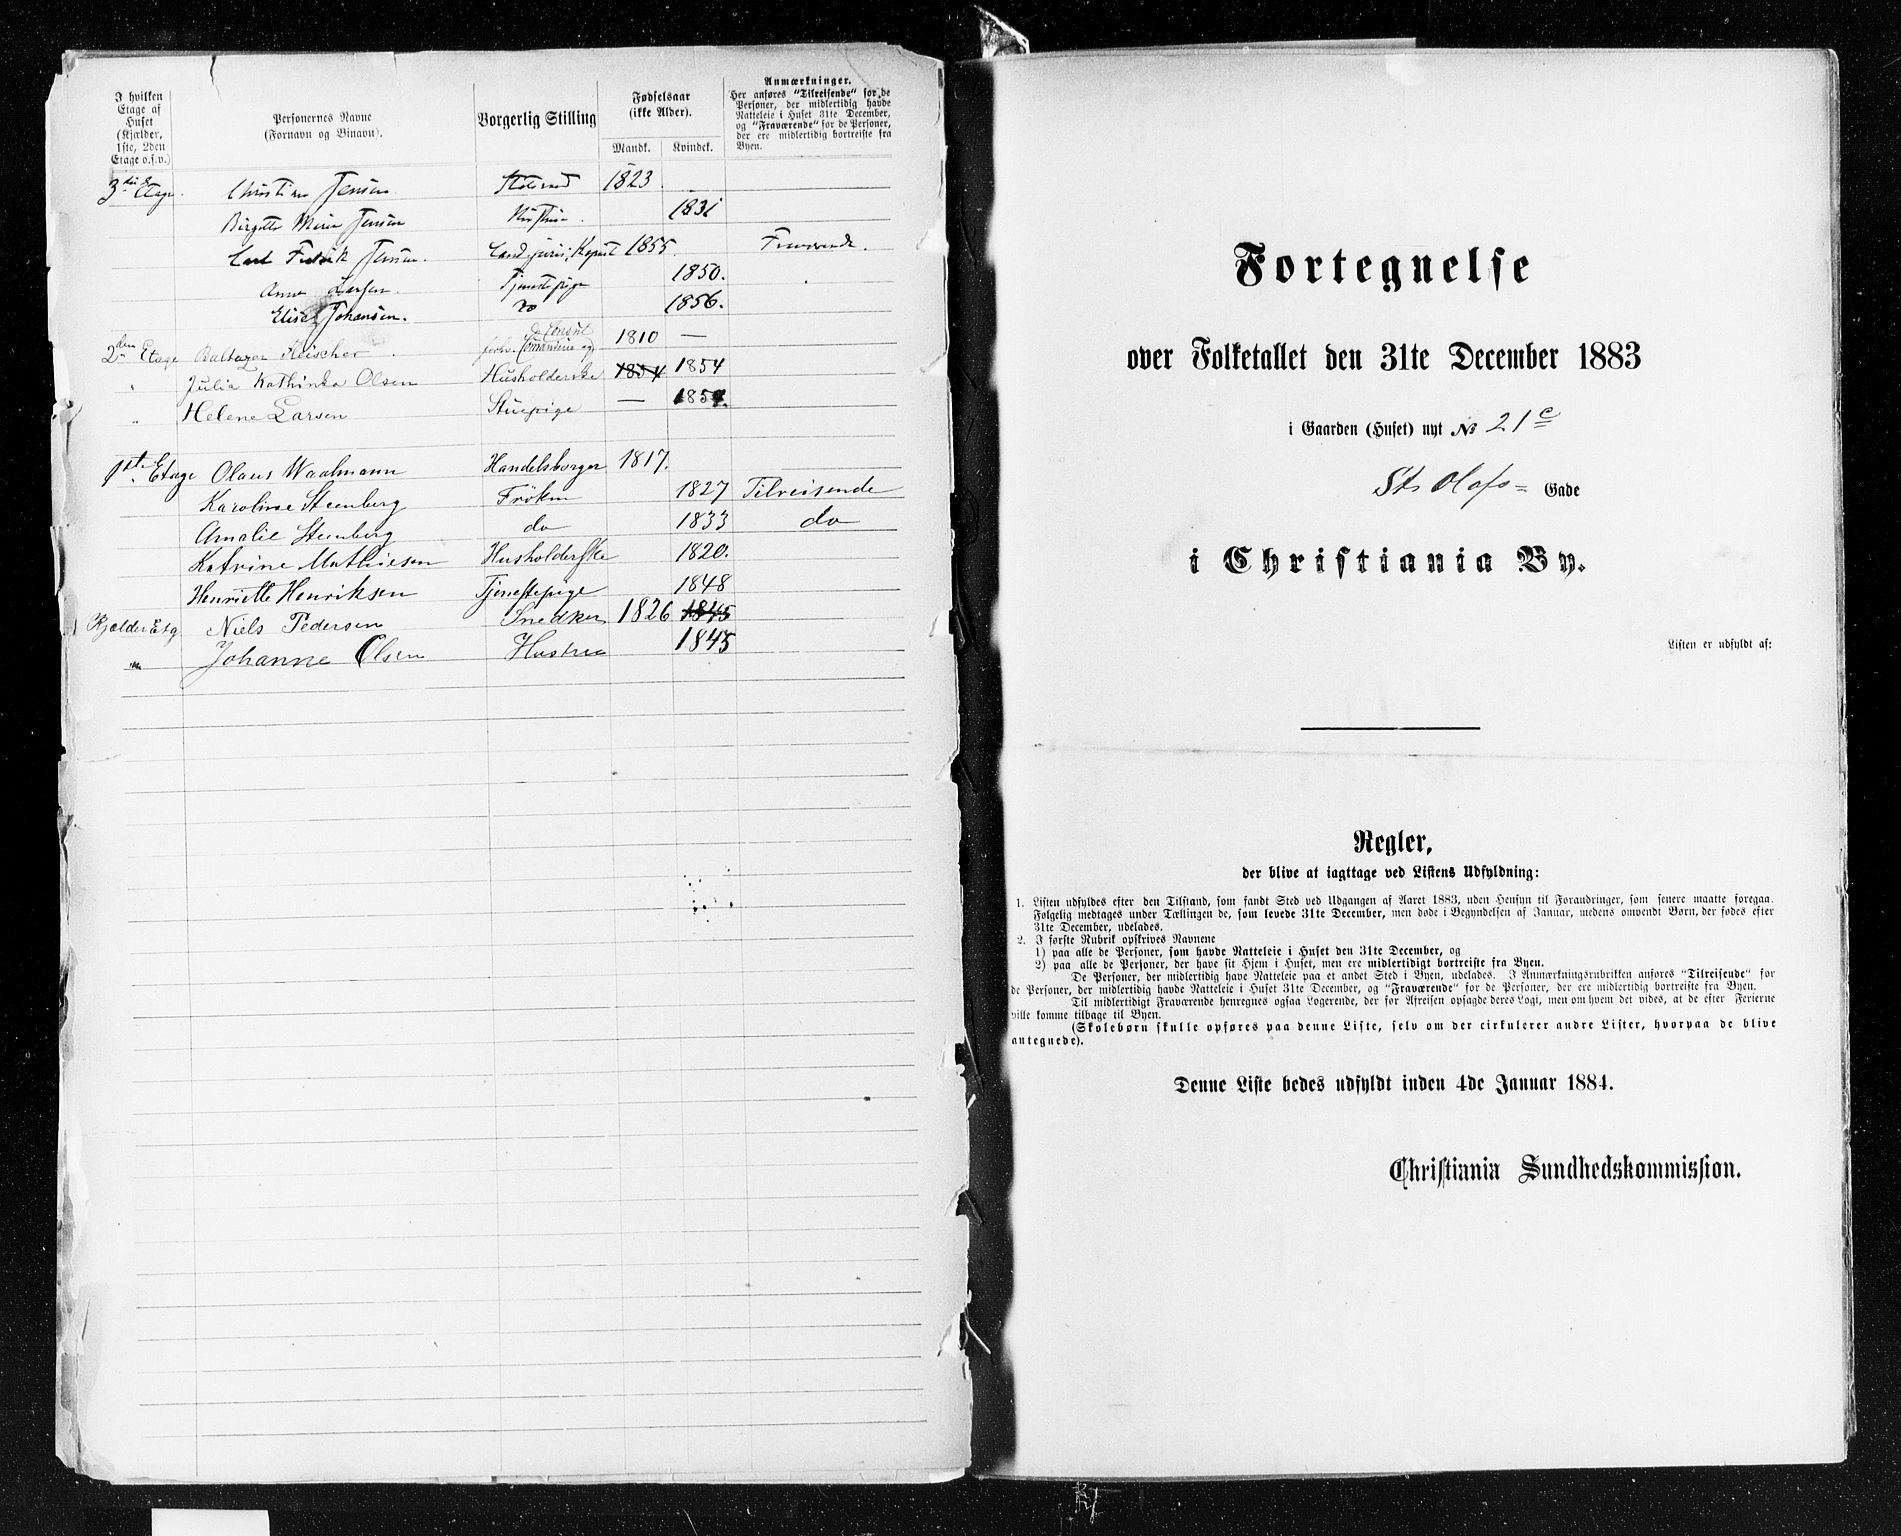 I hvilken
Etage af
Huset
(Kjælder,
1ste, 2den
Etage o.s.v.)
Personernes Navne
(Fornavn og Binavn).
Borgerlig Stilling
Fødselsaar
(ikke Alder).
Mandk. Kvindek.
Anmærkninger.
Her anføres "Tilreisende" for de
Personer, der midlertidig havde
Natteleie i Huset 31te December,
og "Fraværende" for de Personer,
der ere midlertidig bortreiste fra
Byen.
3die Etage Christian Jensen Statsraad 1823
Birgitte Marie Jensen Hustru 1831
Carl Fredrik Jensen. Cand. juris, Kopist 1855 Fraværende.
Anne Larsen Tjenestepige 1850.
Elise Johansen. do 1856.
2den Etage Baltazar forhv. & Consul 1810 —
" Julia Kathinka Olsen Husholderske 1854 1854
" Helene Larsen Stuepige — 1854.
1ste Etage Olaus Waalmann Handelsborger 1817.
Karoline Steenberg Frøken 1827 Tilreisende
Amalie Steenberg do 1833 do
Katrine Mathiesen Husholderske 1820.
Henriette Henriksen Tjenestepige 1848
Kjælder Etg Niels Pedersen Snedker 1826 1845
" Johanne Olsen Hustru 1845
Fortegnelse
over Folketallet den 31te December 1883
i Gaarden (Huset) nyt No 21c
St. Olafs= Gade
i Christiania By.
Listen er udfyldt af:
Regler,
der blive at iagttage ved Listens Udfyldning:
1. Listen udfyldes efter den Tilstand, som fandt Sted ved Udgangen af Aaret 1883, uden Hensyn til Forandringer, som senere maatte foregaa.
Følgelig medtages under Tællingen de, som levede 31te December, men døde i Begyndelsen af Januar, medens omvendt Børn, der fødes efter
31te December, udelades.
2. I første Rubrik opskrives Navnene
1) paa alle de Personer, som havde Natteleie i Huset den 31te December, og
2) paa alle de Personer, der have sit Hjem i Huset, men ere midlertidigt bortreiste fra Byen.
De Personer, der midlertidig have Natteleie paa et andet Sted i Byen, udelades. I Anmærkningsrubrikken anføres "Tilreisende" for
de Personer, der midlertidig havde Natteleie i Huset 31te December, og "Fraværende" for de Personer, der ere midlertidig bortreiste fra Byen.
Til midlertidigt Fraværende henregnes ogsaa Logerende, der før Afreisen opsagde deres Logi, men om hvem det vides, at de efter Ferierne
ville komme tilbage til Byen.
(Skolebørn skulle opføres paa denne Liste, selv om der cirkulerer andre Lister, hvorpaa de blive
antegnede).
Denne Liste bedes udfyldt inden 4de Januar 1884.
Christiania Sundhedskommission.